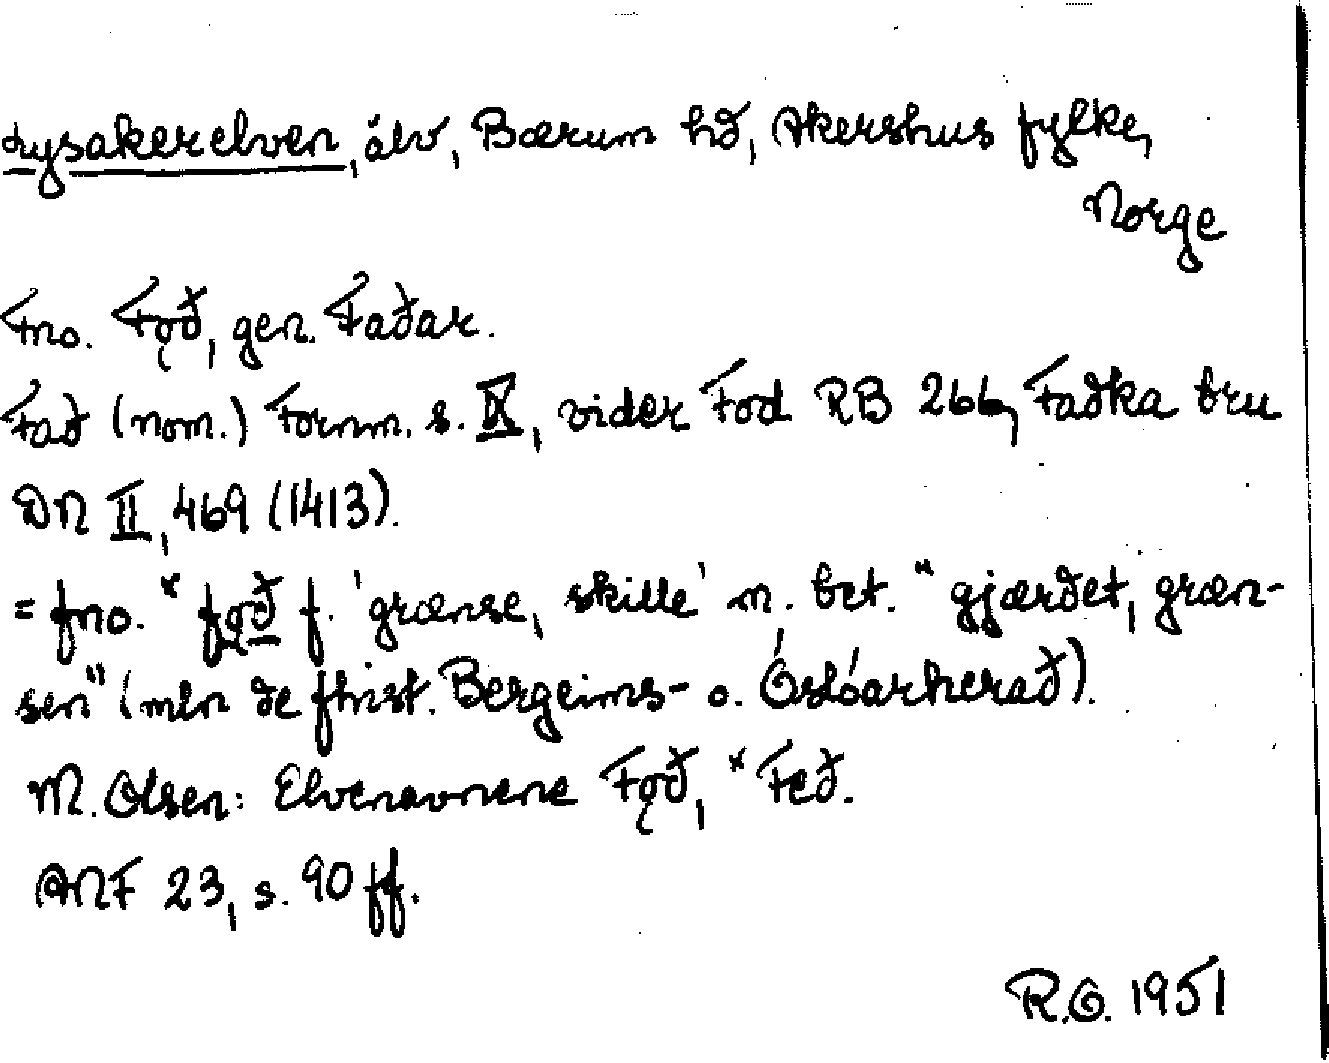 Lysakerelven, älv, Bærum hd, Akershus fylke,
Norge
Fno. Fǫð, gen. Faðar.
Fað (nom.) Fornm. s. IX, vider Fod RB 266, Faðka bru
DN II, 469 (1413).
= fno. *fǫð f. 'grænse, skille' m. bet. "gjærdet, græn-
sen" (mln de fhist. Bergeims- o. Óslóarherað).
M. Olsen: Elvenavnene Fǫð, *Feð.
ANF 23, s. 90 ff.
R.O. 1951